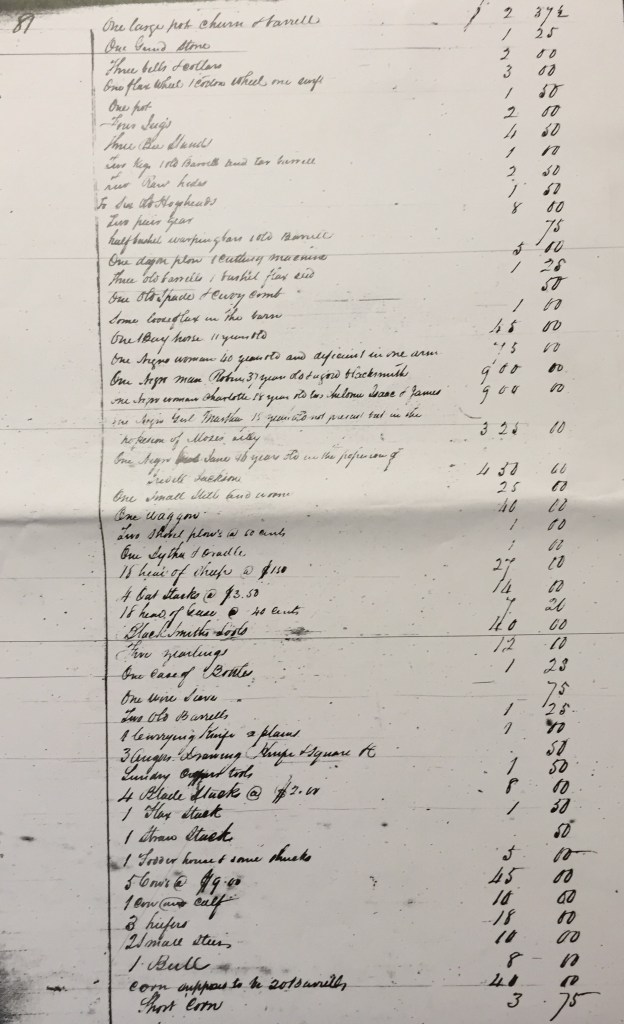 81
One large pot churn & barrell $ 2 37½
One Grind Stone 1 25
Three bells & collars 2 00
One flax Wheel 1 Cotton Wheel one 3 00
One pot 1 50
Four Jugs 2 00
Three Bee Stands 4 50
Two Kegs 1 old Barrell and tar barrell 1 00
Two Raw hides 2 50
To Six do Hogsheads 1 50
Two pair Gear 8 00
half bushel warping bars 1 old Barrell 75
One dagon plow 1 cutting machine 5 00
Three old barrells 1 bushel flax seed 1 25
One Old Spade & Curry comb 50
Some loose flax in the barn 1 00
One Bay horse 11 years old 45 00
One Negro woman 40 years old and deficient in one arm 75 00
One Negro man Robin 37 years old a good blacksmith 900 00
one Negro woman Charlotte 28 years old two children Isaac & James 900 00
one Negro Girl Martha years old not present but in the
possession of Moses 325 00
One Negro Jane 16 years old in the possession of
Jackson 450 00
One Small Still and worm 25 00
One waggon 40 00
Two Shovel plows @ 50 cents 1 00
One Sythe & Cradle 1 00
18 head of sheep @ $1.50 27 00
4 Oat Stacks @ $3.50 14 00
18 head of Geese @ 40 cents 7 20
Black Smiths tools 40 00
yearlings 12 00
One case of Bottles 1 25
One wire Sieve 75
Two Old Barrells 1 25
1 Currying Knife 2 plains 1 00
3 Augers Drawing Knife & Square 50
Sundry tools 1 50
4 Blade Stacks @ $2.00 8 00
1 Flax Stack 1 50
1 Straw Stack 50
1 Fodder house & some shucks 5 00
5 Cows @ $9.00 45 00
1 Cow and calf 10 00
3 heifers 18 00
2 Small Steers 10 00
1 Bull 8 00
corn suppose to be 20 Barrells 40 00
Short Corn 3 75